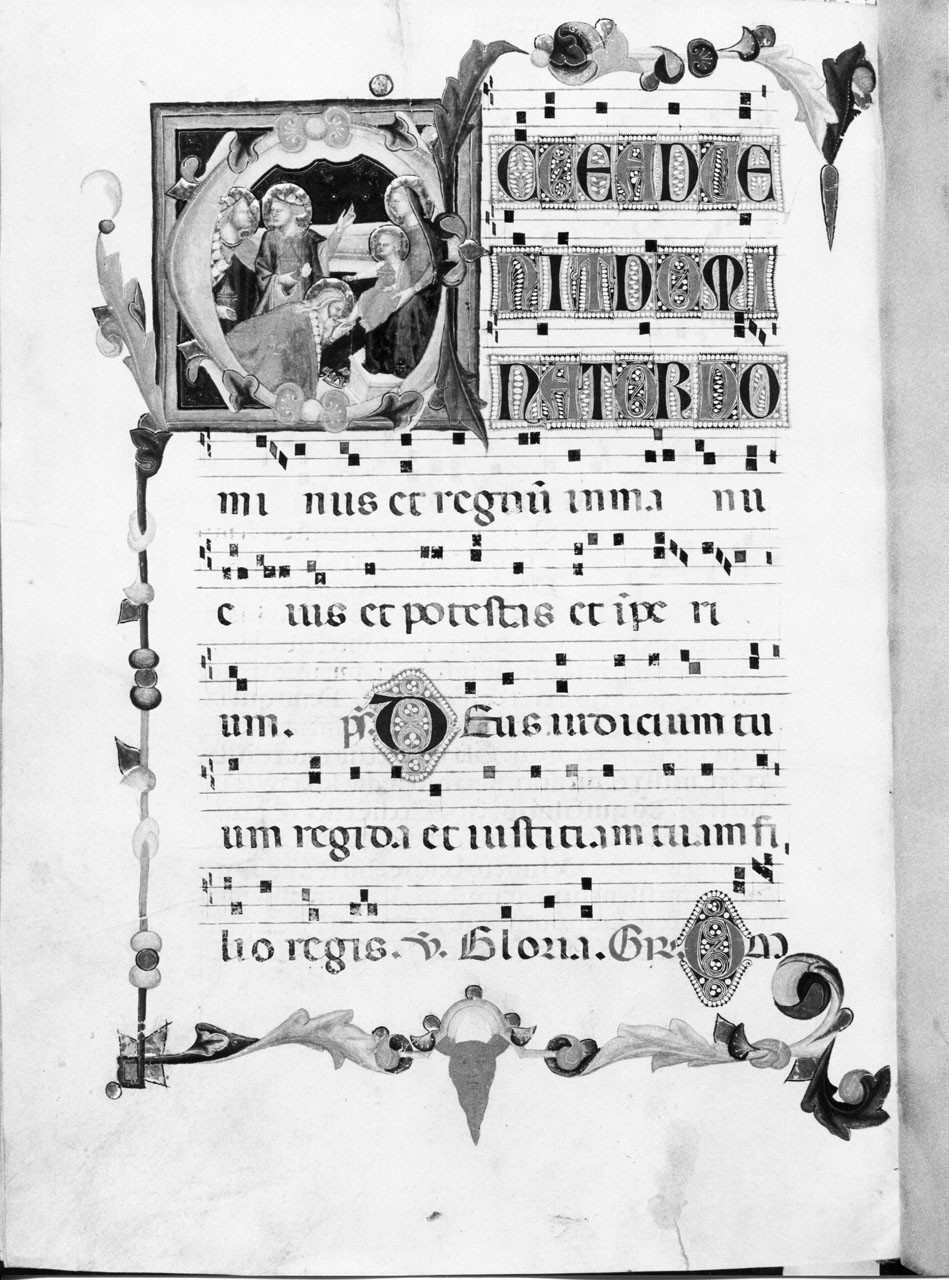 ECCE ADVE
NIT DOMI
NATOR DO
mi nus et regnū in ma nu
e ius et potestas et īpe ri
um. ps̄. DEus iudicium tu
um regi da et iusticiam tuam fi
lio regis. v̄. Gloria. Gr. OM